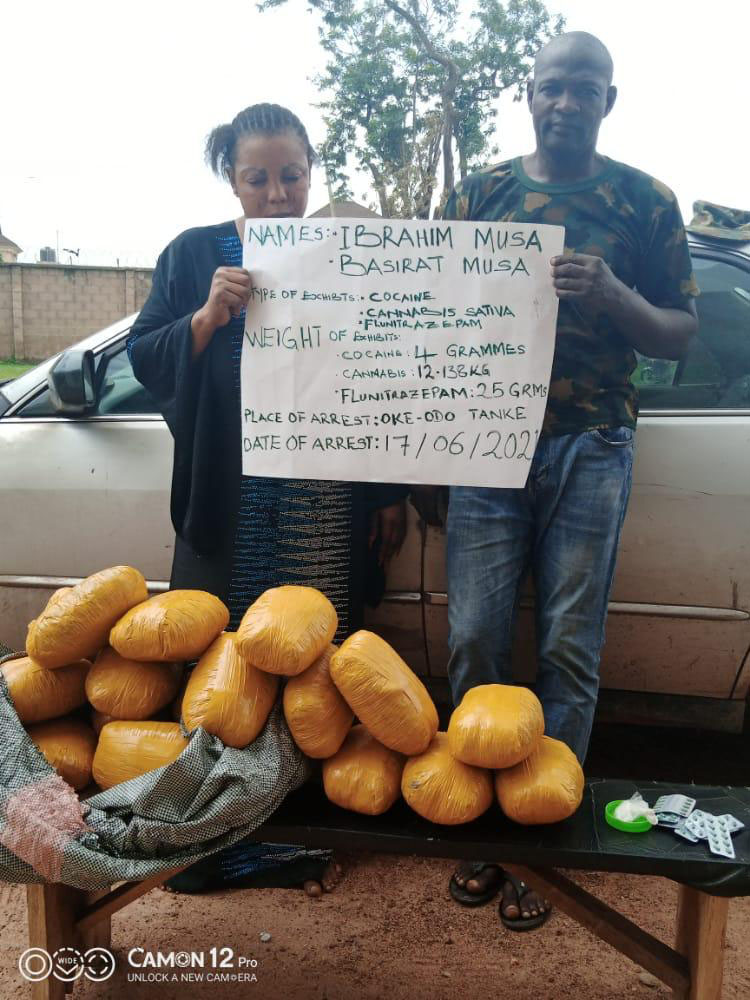 NAMES:·IBRAHIM MUSA
·BASIRAT MUSA
TYPE OF EXHIBITS:· COCAINE
·CANNABIS SATIVA
·FLUNITRAZEPAM
WEIGHT OF EXHIBITS:
·COCAINE: 4 GRAMMES
·CANNABIS: 12·138KG
·FLUNITRAZEPAM: 25 GRMS
PLACE OF ARREST: OKE-ODO TANKE
DATE OF ARREST: 17/06/2021
WIDE
CAMON 12 Pro
UNLOCK A NEW CAMERA